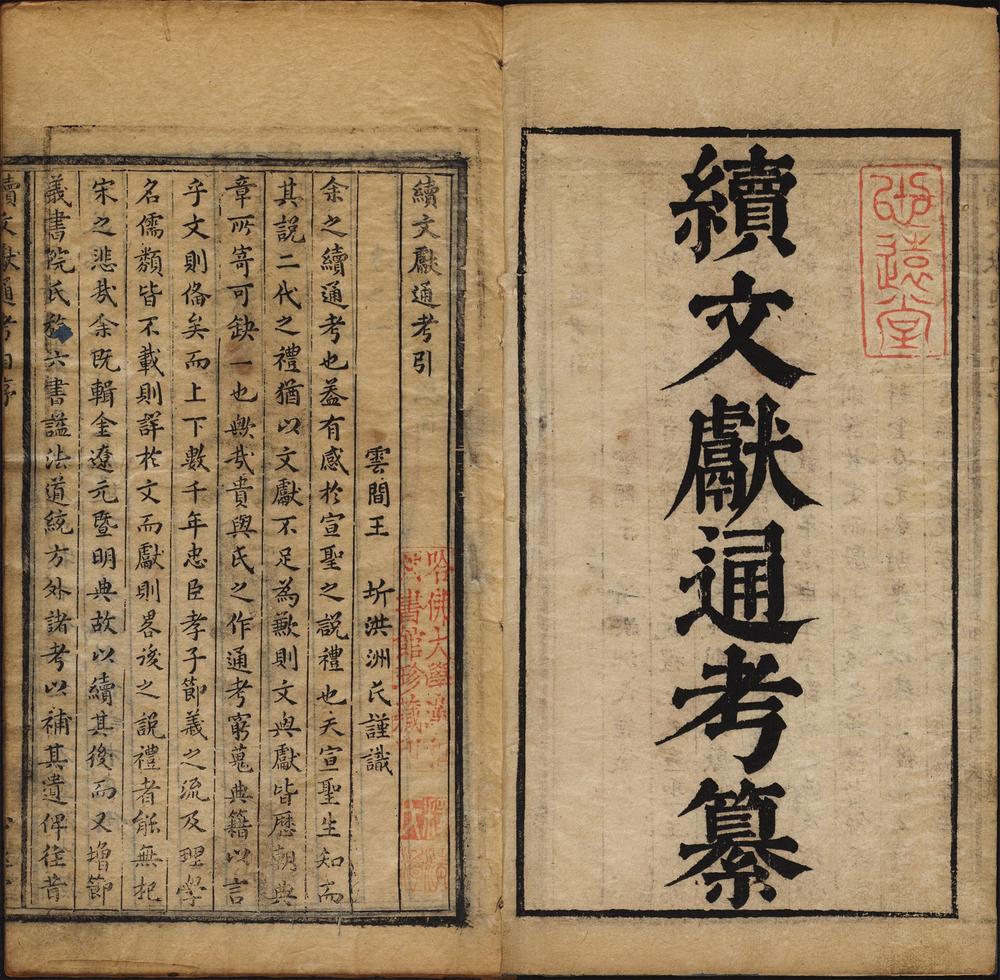 遠堂
續文獻通考纂
續文獻通考引
雲間王 圻洪洲氏謹識
哈佛大學漢和
圖書館珍藏印
余之續通考也葢有感於宣聖之說禮也夫宣聖生知而
其說二代之禮猶以文獻不足為歉則文與獻皆歷朝典
章所寄可缺一也歟哉貴與氏之作通考窮蒐典籍以言
乎文則俻矣而上下數千年忠臣孝子節義之流及理學
名儒類皆不載則詳於文而獻則畧後之說禮者能無杞
宋之悲哉余既輯金遼元暨明典故以續其後而又增節
義書院氏族六書謚法道統方外諸考以補其遺俾往昔
續文獻通考自序